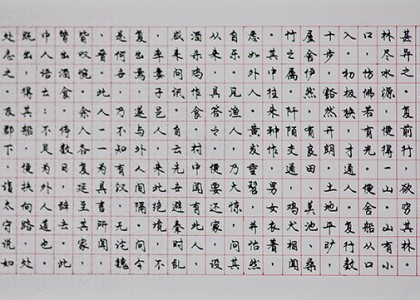 甚异之。复前行,欲穷其
林尽水源,便得一山,山有小
口,仿佛若有光。便舍船,从口
入。初极狭,才通人。复行数
十步,豁然开朗。土地平旷,
屋舍俨然,有良田、美池、桑
竹之属。阡陌交通,鸡犬相闻
。其中往来种作,男女衣着,
悉如外人。黄发垂髫,并怡然
自乐。见渔人,乃大惊,问所
从来。具答之。便要还家,设
酒杀鸡作食。村中闻有此人,
咸来问讯。自云先世避秦时乱
,率妻子邑人来此绝境,不
复出焉,遂与外人间隔。问今
是何世,乃不知有汉,无论魏
、晋。此人一一为具言所闻,
皆叹惋。余人各复延至其家,
皆出酒食。停数日,辞去。此
中人语云:不足为外人道也。
既出,得其船,便扶向路,处
处志之。及郡下,诣太守说如